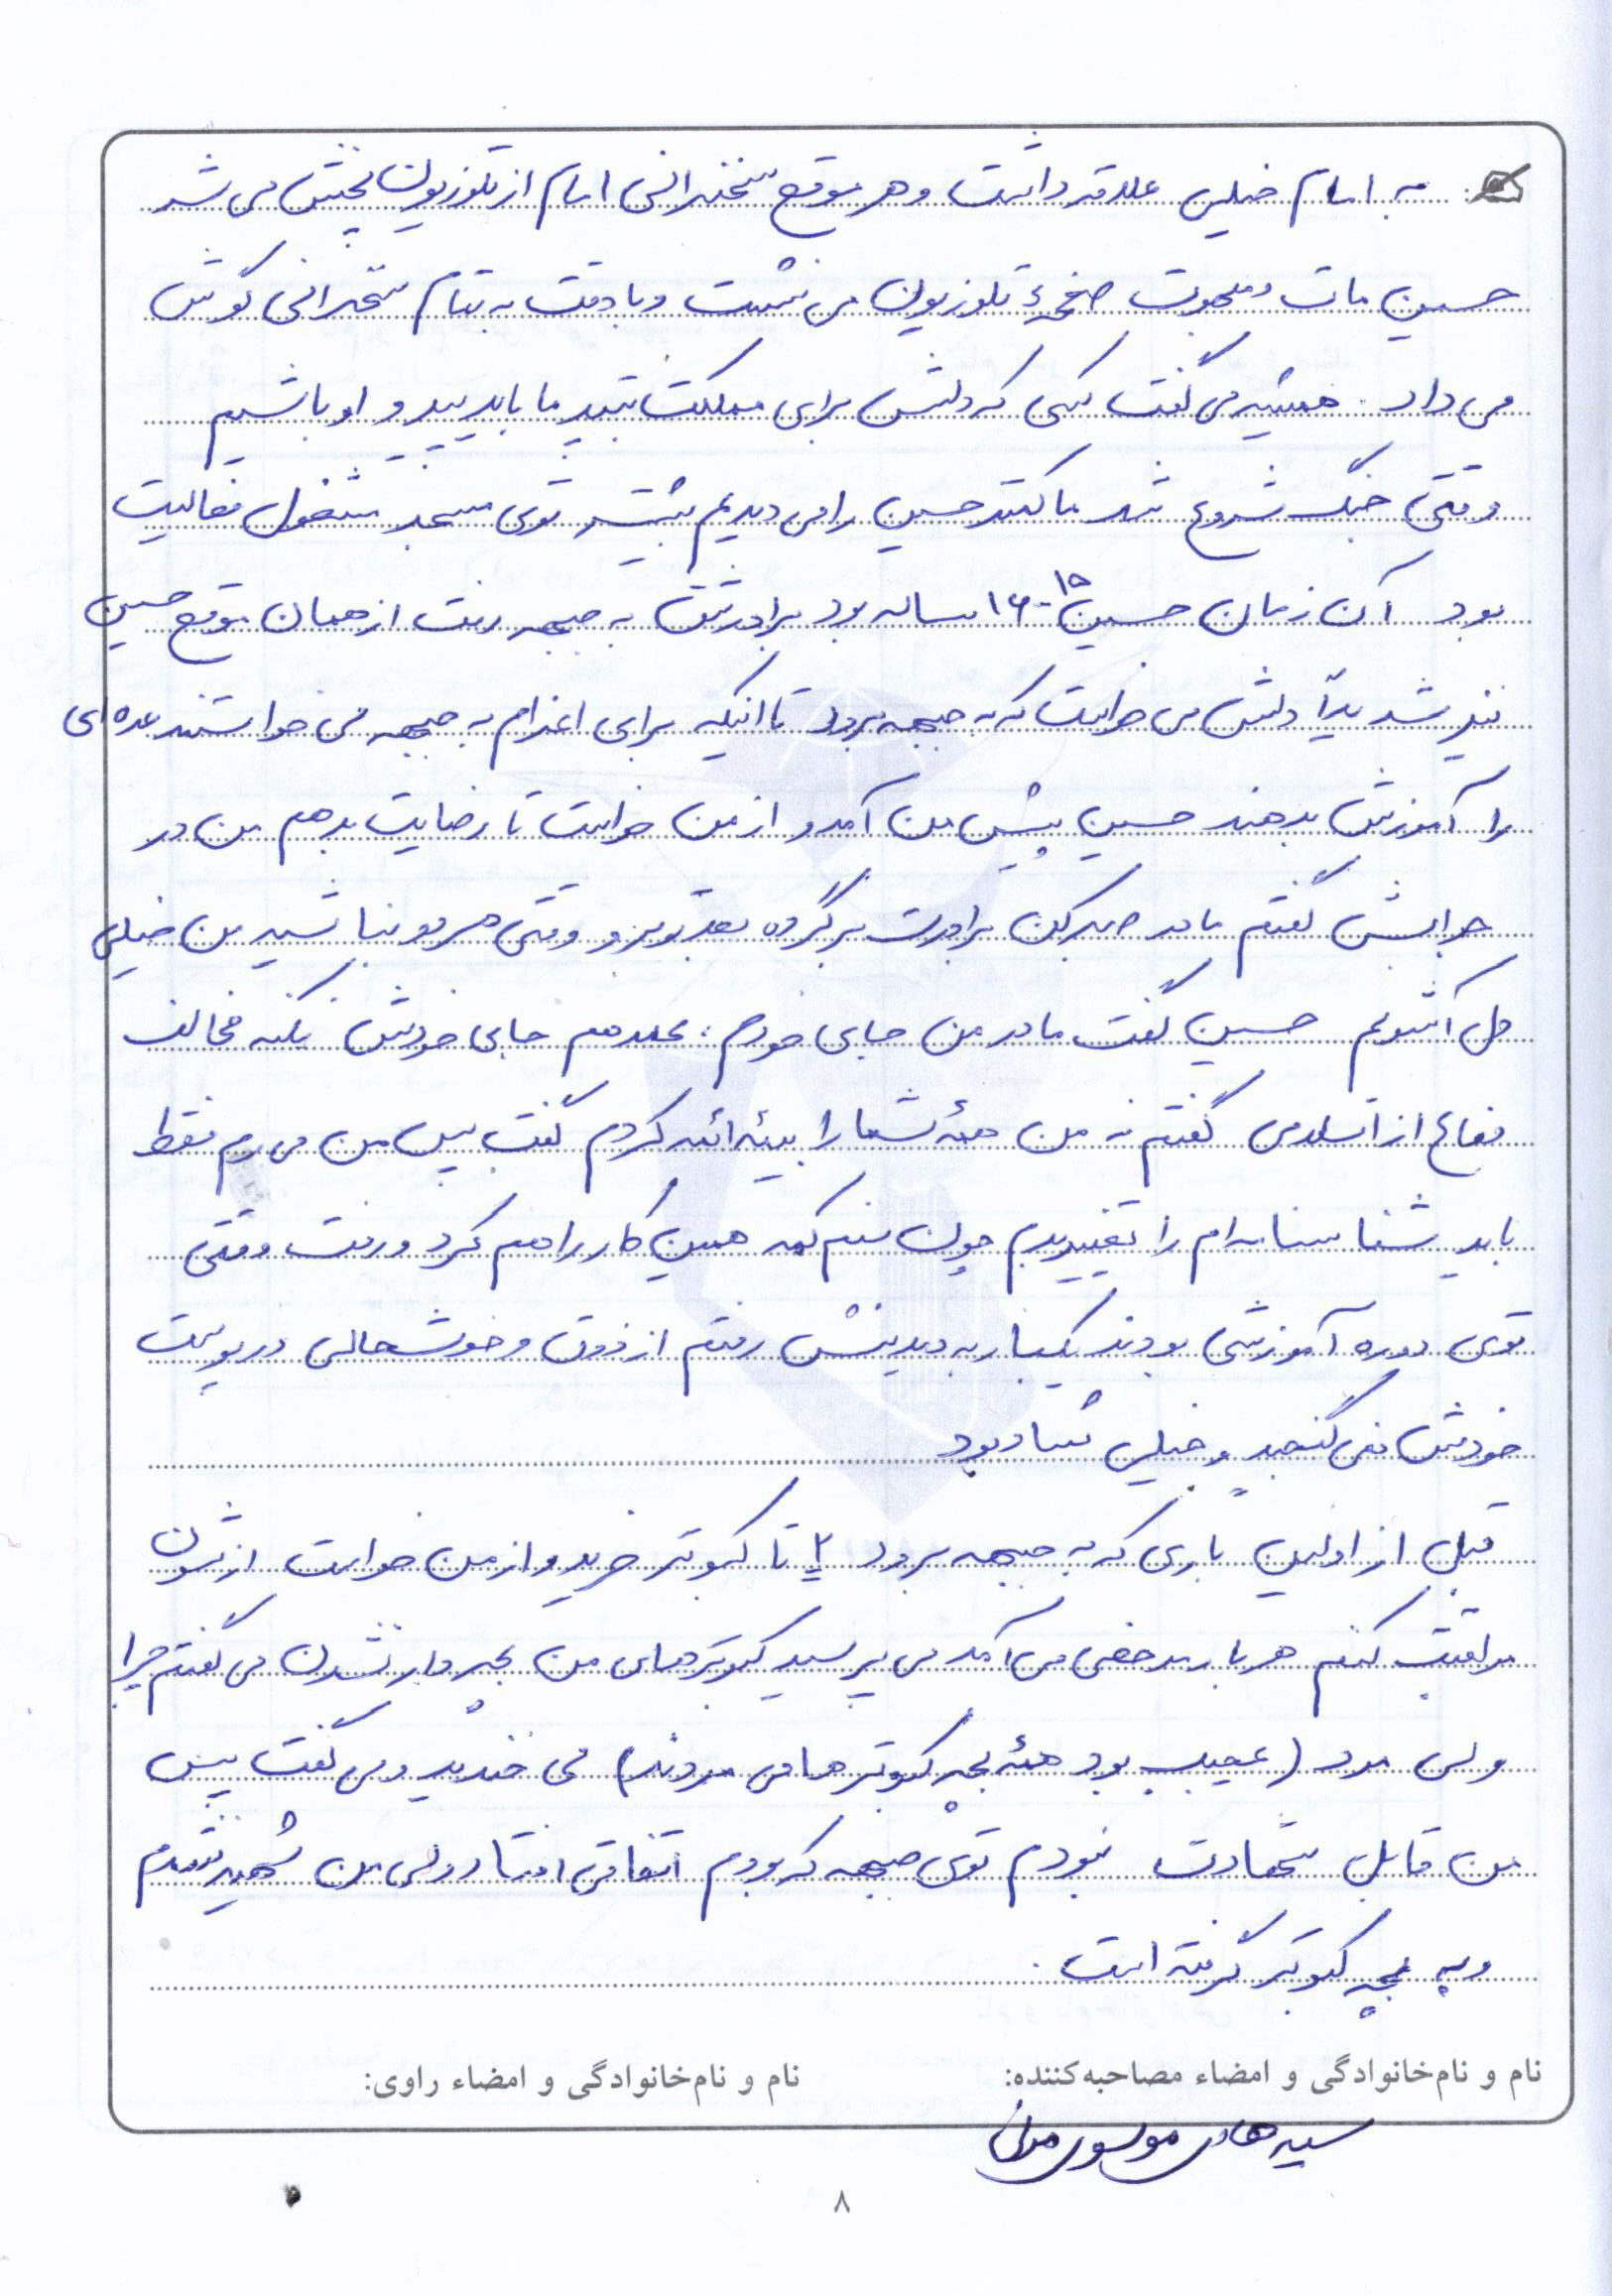 به امام خیلی علاقه داشت و هر موقع سخنرانی امام از تلوزیون پخش می شد
حسین مات و مبهوت صفحهٔ تلوزیون می نشست و با دقت به تمام سخنرانی گوش
می داد. همیشه می گفت کسی که دلش برای مملکت بتپد ما باید پیرو او باشیم
وقتی جنگ شروع شد ما کمتر حسین را می دیدیم بیشتر توی مسجد مشغول فعالیت
بود آن زمان حسین ۱۵-۱۶ ساله بود برادرش به جبهه رفت از همان موقع حسین
نیز شدیداً دلش می خواست که به جبهه برود تا اینکه برای اعزام به جبهه می خواستند عده ای
را آموزش بدهند حسین پیش من آمد و از من خواست تا رضایت بدهم من در
جوابش گفتم مادر صبر کن برادرت برگرده بعد تو برو وقتی هر دو نباشید من خیلی
دل آشوبم حسین گفت مادر من جای خودم، محمد هم جای خودش نکنه مخالف
دفاع از اسلامی گفتم نه من همهٔ شما را بیمهٔ ائمه کردم گفت پس من می رم فقط
باید شناسنامه ام را تغییر بدم چون سنم کمه همین کار را هم کرد و رفت وقتی
توی دوره آموزشی بودند یکبار به دیدنش رفتم از ذوق و خوشحالی در پوست
خودش نمی گنجید و خیلی شاد بود
قبل از اولین باری که به جبهه برود ۲ تا کبوتر خرید و از من خواست ازشون
مراقبت کنم هر بار مرخصی می آمد می پرسید کبوترهای من بچه دار نشدن می گفتم چرا
ولی مرد (عجیب بود همهٔ بچه کبوترها می مردند) می خندید و می گفت پس
من قابل شهادت نبودم توی جبهه که بودم اتفاقی افتاد ولی من شهید نشدم
و به بچه کبوتر گرفته است.
نام و نام‌خانوادگی و امضاء مصاحبه‌کننده:
نام و نام‌خانوادگی و امضاء راوی:
سید هادی موسوی
۸